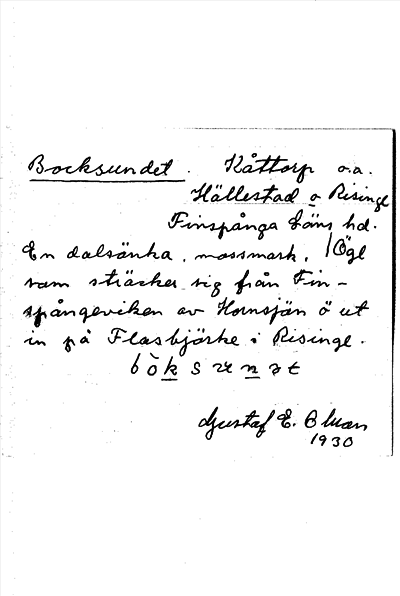 Bocksundet. Kåttorp o.a.
Hällestad o Risinge
Finspånga läns hd.
En dalsänka, mossmark, /Ögl
som sträcker sig från Fin-
spångeviken av Hornsjön ö ut
in på Flasbjörke i Risinge.
bòksunət
Gustaf E.
1930